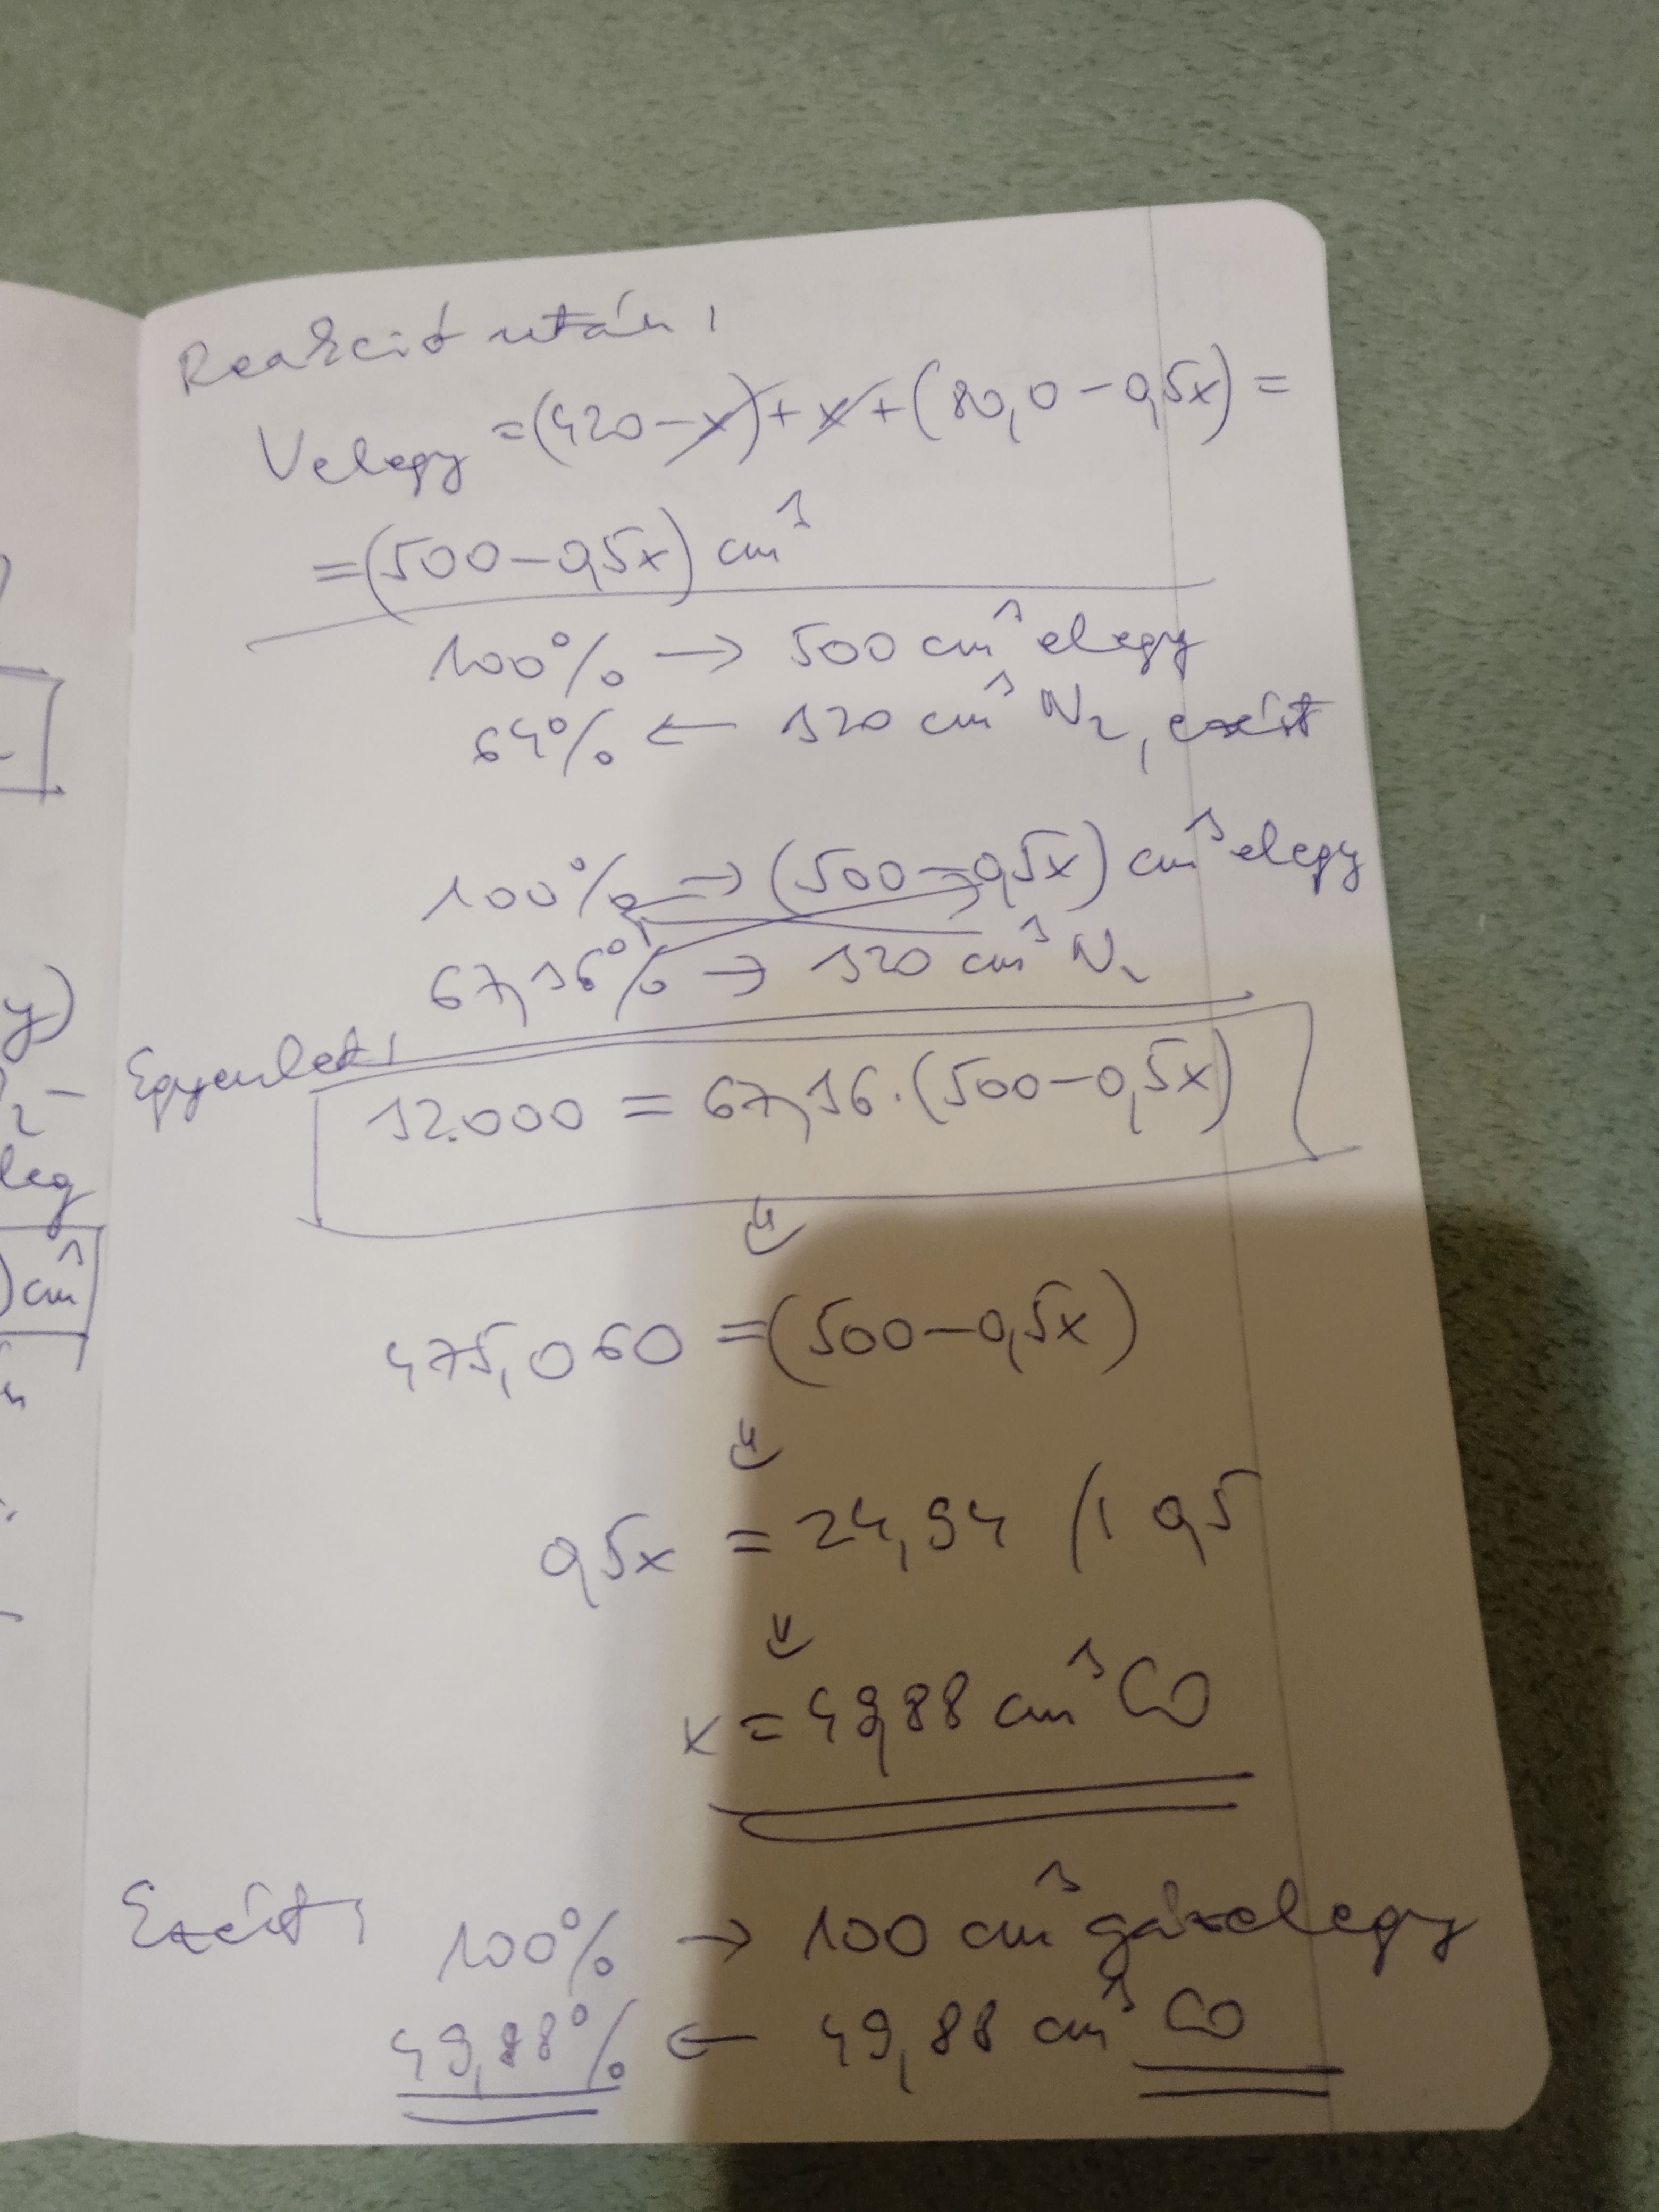 Reakció után:
Velegy = (420 - x) + x + (80,0 - 0,5x) =
= (500 - 0,5x) cm³
100% → 500 cm³ elegy
64% ← 320 cm³ N₂, ezért
100% → (500 - 0,5x) cm³ elegy
67,36% → 320 cm³ N₂
Egyenlet:
32.000 = 67,36 · (500 - 0,5x)
⇓
475,060 = (500 - 0,5x)
⇓
0,5x = 24,94 /: 0,5
⇓
x = 49,88 cm³ CO
Ezért: 100% → 100 cm³ gázelegy
49,88% ← 49,88 cm³ CO
y)
leg
) cm³